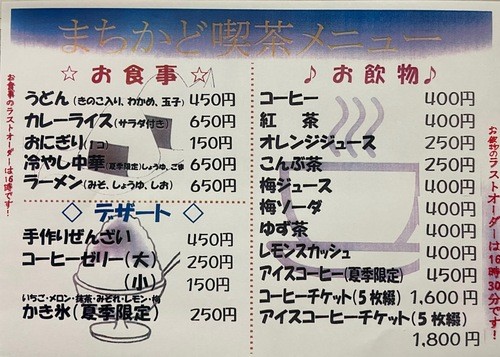 まちかど喫茶メニュー
☆ お食事 ☆
うどん(きのこ入り、わかめ、玉子) 450円
カレーライス(サラダ付き) 650円
おにぎり(1コ) 150円
冷やし中華(夏季限定)しょうゆ、ごま 650円
ラーメン(みそ、しょうゆ、しお) 650円
◇ デザート ◇
手作りぜんざい 450円
コーヒーゼリー(大) 250円
(小) 150円
いちご・メロン・抹茶・みぞれ・レモン・梅
かき氷(夏季限定) 250円
お食事のラストオーダーは16時です!
♪ お飲物♪
コーヒー 400円
紅 茶 400円
オレンジジュース 250円
こんぶ茶 250円
梅ジュース 400円
梅ソーダ 400円
ゆず茶 400円
レモンスカッシュ 400円
アイスコーヒー(夏季限定) 450円
コーヒーチケット(5枚綴) 1,600円
アイスコーヒーチケット(5枚綴)
1,800円
お飲物のラストオーダーは16時30分です!